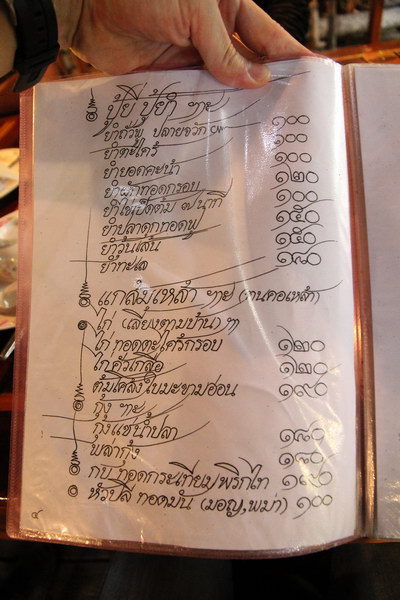 ยำถั่วพู ปลายจวัก ๙๐
ยำตะไคร้ ๑๐๐
ยำยอดคะน้า ๑๐๐
ยำผักทอดกรอบ ๑๒๐
ยำไข่เป็ดต้ม ๗ นาที ๑๐๐
ยำปลาดุกทอดฟู ๑๕๐
ยำวุ้นเส้น ๑๕๐
ยำทะเล
แกล้มเหล้า ฯาย (กานคอเหล้า)
ไก่ (เลี้ยงตามบ้าน) ๆ
ไก่ ทอดตะไคร้กรอบ ๑๒๐
ไก่คั่วเกลือ ๑๒๐
ต้มโคล้งใบมะขามอ่อน ๑๙๐
กุ้ง ฯาย
กุ้งแช่น้ำปลา ๑๙๐
พล่ากุ้ง ๑๙๐
กบ ทอดกระเทียมพริกไท ๑๙๐
หัวปลี ทอดมัน (มอญ,พม่า) ๑๐๐
๔